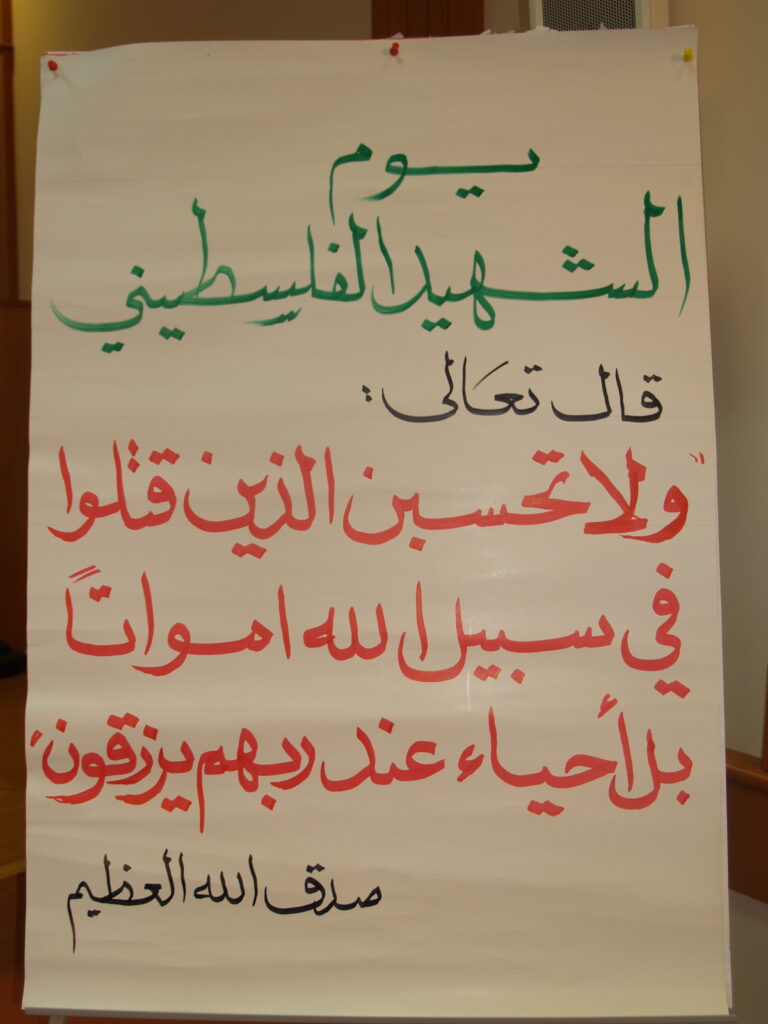 يوم
الشهيد الفلسطيني
قال تعَالى:
"ولا تحسبن الذين قتلوا
في سبيل الله امواتاً
بل أحياء عند ربهم يرزقون"
صدق الله العظيم